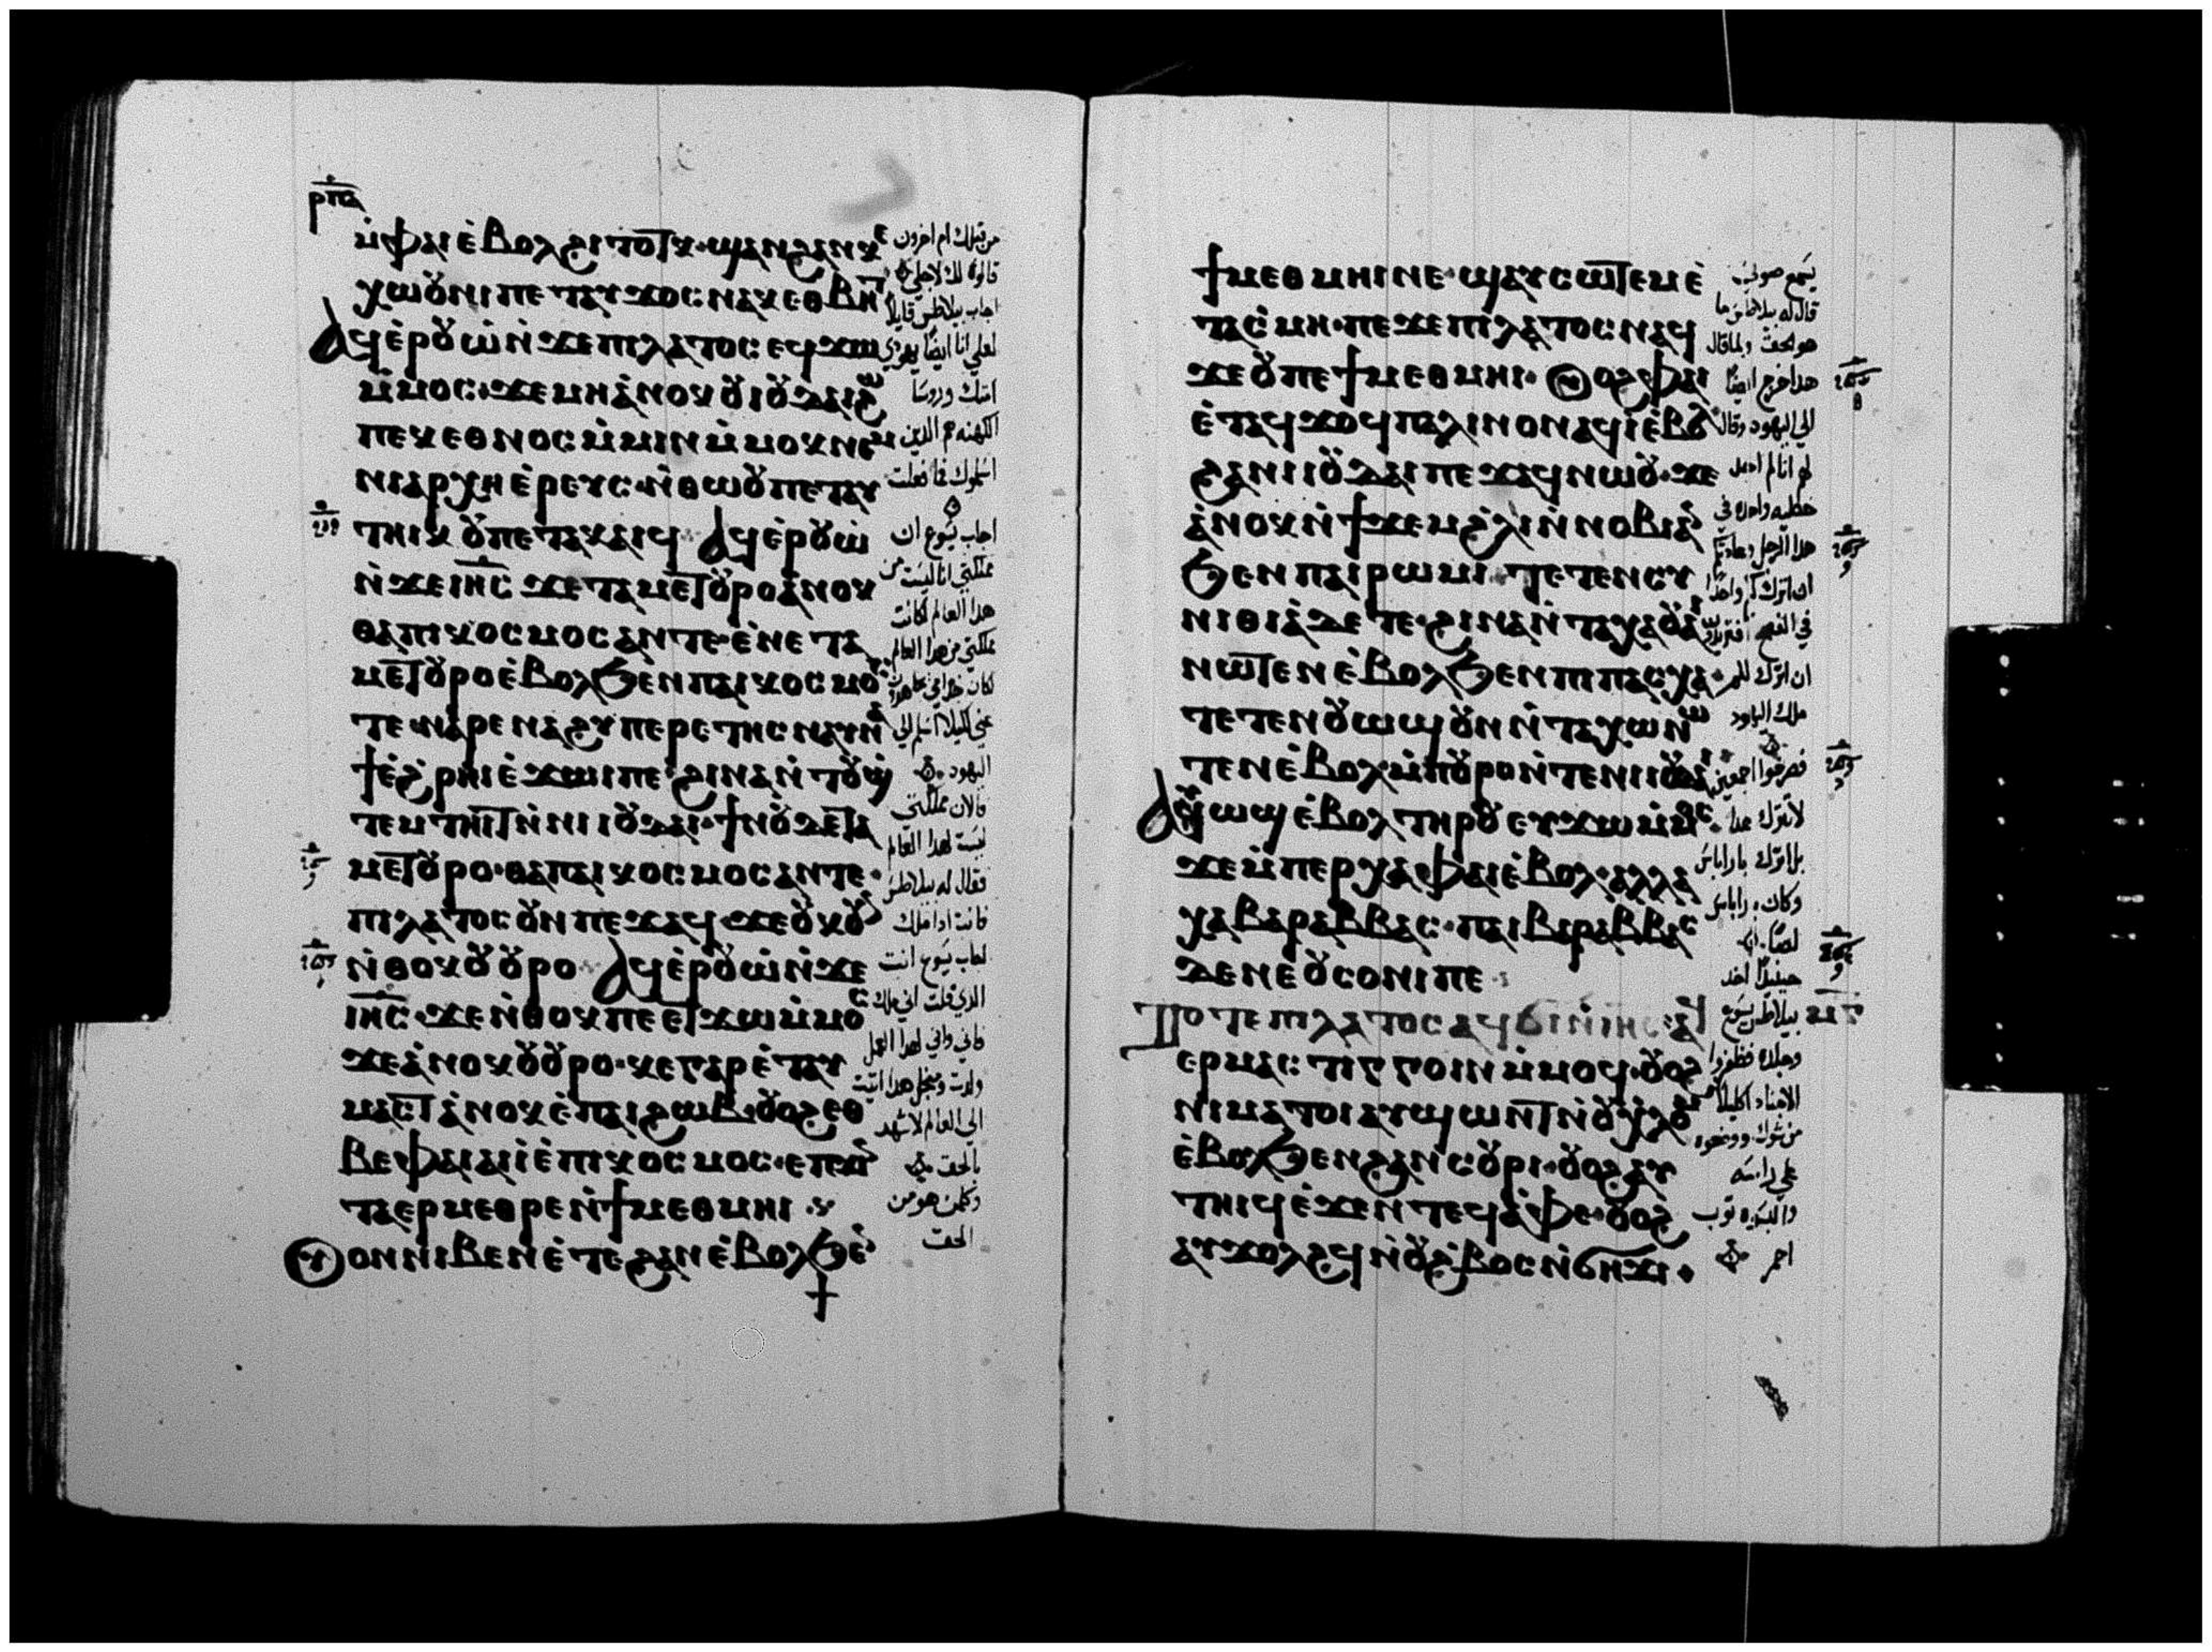 ⲣⲡⲁ
ⲙ̀ⲫⲁⲓ ⲉ̀ⲃⲟⲗ ϩⲓⲧⲟⲧⲕ · ϣⲁⲛ ϩⲁⲛⲕⲉ
ⲭⲱⲟⲩⲛⲓ ⲡⲉⲧⲁⲩϫⲟⲥ ⲛⲁⲕ ⲉⲑⲃⲏⲧ
ⲁϥⲉ̀ⲣⲟⲩⲱ̀ ⲛ̀ϫⲉ ⲡⲓⲗⲁⲧⲟⲥ ⲉϥϫⲱ
ⲙ̀ⲙⲟⲥ · ϫⲉ ⲙⲏ ⲁ̀ⲛⲟⲕ ⲟⲩⲓⲟⲩⲇⲁⲓ ϩⲱ
ⲡⲉⲕⲉⲑⲛⲟⲥ ⲙ̀ⲙⲓⲛ ⲙ̀ⲙⲟⲕ ⲛⲉⲙ
ⲛⲓⲁⲣⲭⲏⲉ̀ⲣⲉⲩⲥ · ⲛ̀ⲑⲱⲟⲩ ⲡⲉⲧⲁⲩ
ⲧⲏⲓⲕ ⲟⲩ ⲡⲉⲧⲁⲕⲁⲓϥ ⲁϥⲉ̀ⲣⲟⲩⲱ̀
ⲛ̀ϫⲉ ⲓⲏⲥ ϫⲉ ⲧⲁⲙⲉⲧⲟⲩⲣⲟ ⲁ̀ⲛⲟⲕ
ⲑⲁ ⲡⲓⲕⲟⲥⲙⲟⲥ ⲁⲛ ⲧⲉ · ⲉ̀ⲛⲉ ⲧⲁ
ⲙⲉⲧⲟⲩⲣⲟ ⲉ̀ⲃⲟⲗ ϧⲉⲛ ⲡⲁⲓⲕⲟⲥⲙⲟⲥ
ⲧⲉ · ⲛⲁⲣⲉ ⲛⲁϩⲩⲡⲉⲣⲉⲧⲏⲥ ⲛⲁⲩⲛⲁ
ϯ ⲉ̀ϩ̀ⲣⲏⲓ ⲉ̀ϫⲱⲓ ⲡⲉ · ϩⲓⲛⲁ ⲛ̀ⲧⲟⲩϣ̀
ⲧⲉⲙⲧⲏⲓⲧ ⲛ̀ⲛⲓⲓⲟⲩⲇⲁⲓ · ϯⲛⲟⲩ ⲇⲉ ⲧⲁ
ⲙⲉⲧⲟⲩⲣⲟ · ⲑⲁ ⲡⲁⲓⲕⲟⲥⲙⲟⲥ ⲁⲛ ⲧⲉ ·
ⲡⲓⲗⲁⲧⲟⲥ ⲟⲩⲛ ⲡⲉϫⲁϥ · ϫⲉ ⲟⲩⲕⲟⲩⲛ
ⲛ̀ⲑⲟⲕ ⲟⲩⲟⲩⲣⲟ ⲁϥⲉ̀ⲣⲟⲩⲱ̀ ⲛ̀ϫⲉ
ⲓⲏⲥ · ϫⲉ ⲛ̀ⲑⲟⲕ ⲡⲉⲧϫⲱ ⲙ̀ⲙⲟⲥ
ϫⲉ ⲁ̀ⲛⲟⲕ ⲟⲩⲟⲩⲣⲟ · ⲕⲉ ⲅⲁⲣ ⲉ̀ⲧⲁⲩ
ⲙⲁⲥⲧ ⲁ̀ⲛⲟⲕ ⲉ̀ⲡⲁⲓϩⲱⲃ · ⲟⲩⲟϩ ⲉⲑ
ⲃⲉ ⲫⲁⲓ ⲁⲓⲓ̀ ⲉ̀ⲡⲓⲕⲟⲥⲙⲟⲥ · ⲉⲡϫⲓⲛ
ⲧⲁⲉⲣⲙⲉⲑⲣⲉ ⲛ̀ϯⲙⲉⲑⲙⲏⲓ
ⲟⲩⲟⲛ ⲛⲓⲃⲉⲛ ⲉ̀ⲧⲉ ϩⲁⲛ ⲉ̀ⲃⲟⲗ ϧⲉⲛ
من قبلك ام اخرون
قالوه لك لاجلي
اجاب بيلاطس قايلا
لعلي انا ايضا يهودي
امتك وروسا
الكهنه هم الدين
اسلموك فما فعلت
اجاب يسوع ان
مملكتي انا ليست من
هدا العالم لو كانت
مملكتي من هدا العالم
اليهود
فالان مملكتي
ليست لهدا العالم
فقال له بيلاطس
فانت ادا ملك
اجاب يسوع انت
الدي قلت اني ملك
ولدت ومن اجل هدا اتيت
الي العالم لاشهد
بالحق
وكلمن هو من
الحق
ϯⲙⲉⲑⲙⲏⲓ ⲛⲉ · ϣⲁⲩⲥⲱⲧⲉⲙ ⲉ̀
ⲧⲁⲥ̀ⲙⲏ · ⲡⲉϫⲉ ⲡⲓⲗⲁⲧⲟⲥ ⲛⲁϥ
ϫⲉ ⲟⲩ ⲡⲉ ϯⲙⲉⲑⲙⲏⲓ · ⲟⲩⲟϩ ⲫⲁⲓ
ⲉ̀ⲧⲁϥϫⲟϥ ⲡⲁⲗⲓⲛ ⲟⲛ ⲁϥⲓ̀ ⲉ̀ⲃⲟⲗ
ϩⲁ ⲛⲓⲓⲟⲩⲇⲁⲓ ⲡⲉϫⲁϥ ⲛⲱⲟⲩ · ϫⲉ
ⲁ̀ⲛⲟⲕ ⲛ̀ϯϫⲉⲙ ϩ̀ⲗⲓ ⲛ̀ⲛⲟⲃⲓ ⲁⲛ
ϧⲉⲛ ⲡⲁⲓⲣⲱⲙⲓ · ⲧⲉⲧⲉⲛⲥⲩ
ⲛⲓⲑⲓⲁ̀ ⲇⲉ ⲧⲉ · ϩⲓⲛⲁ ⲛ̀ⲧⲁⲭⲁ ⲟⲩⲁⲓ
ⲛⲱⲧⲉⲛ ⲉ̀ⲃⲟⲗ ϧⲉⲛ ⲡⲓⲡⲁⲥⲭⲁ ·
ⲧⲉⲧⲉⲛⲟⲩⲱϣ ⲟⲩⲛ ⲛ̀ⲧⲁⲭⲱ ⲛⲱ
ⲧⲉⲛ ⲉ̀ⲃⲟⲗ ⲙ̀ⲡⲟⲩⲣⲟ ⲛ̀ⲧⲉ ⲛⲓⲓⲟⲩⲇⲁⲓ
ⲁⲩⲱϣ ⲉ̀ⲃⲟⲗ ⲧⲏⲣⲟⲩ ⲉⲩϫⲱ ⲙ̀ⲙⲟⲥ ·
ϫⲉ ⲙ̀ⲡⲉⲣⲭⲁ ⲫⲁⲓ ⲉ̀ⲃⲟⲗ · ⲁⲗⲗⲁ
ⲭⲁ ⲃⲁⲣⲁⲃⲃⲁⲥ · ⲡⲁⲓⲃⲁⲣⲁⲃⲃⲁⲥ
ⲇⲉ ⲛⲉ ⲟⲩⲥⲟⲛⲓ ⲡⲉ
ⲧⲟⲧⲉ ⲡⲓⲗⲁⲧⲟⲥ ⲁϥϭⲓ ⲛ̀ⲓⲏⲥ · ⲁϥ
ⲉⲣⲙⲁⲥⲧⲓⲅⲅⲟⲓⲛ ⲙ̀ⲙⲟϥ · ⲟⲩⲟϩ
ⲛⲓⲙⲁⲧⲟⲓ ⲁⲩϣⲱⲛⲧ ⲛ̀ⲟⲩⲭ̀ⲗⲟⲙ
ⲉ̀ⲃⲟⲗ ϧⲉⲛ ϩⲁⲛⲥⲟⲩⲣⲓ · ⲟⲩⲟϩ ⲁⲩ
ⲧⲏⲓϥ ⲉ̀ϫⲉⲛ ⲧⲉϥⲁ̀ⲫⲉ · ⲟⲩⲟϩ
ⲁⲩϫⲟⲗϩϥ ⲛ̀ⲟⲩϩ̀ⲃⲟⲥ ⲛ̀ϭⲏϫⲓ ·
يسمع صوتي
قال له بيلاطس ما
هو الحق ولما قال
هدا خرج ايضا
الي اليهود وقال
لهم انا لم اجد
خطيه واحده في
ان اترك لكم
ملك اليهود
فصرخوا اجمعين
لا تترك هدا
بل اترك باراباس
وكان باراباس
لصا
حينيد اخد
بيلاطس يسوع
وجلده فظفروا
الاجناد اكليلا
من شوك ووضعوه
علي راسه
والبسوه توب
احمر